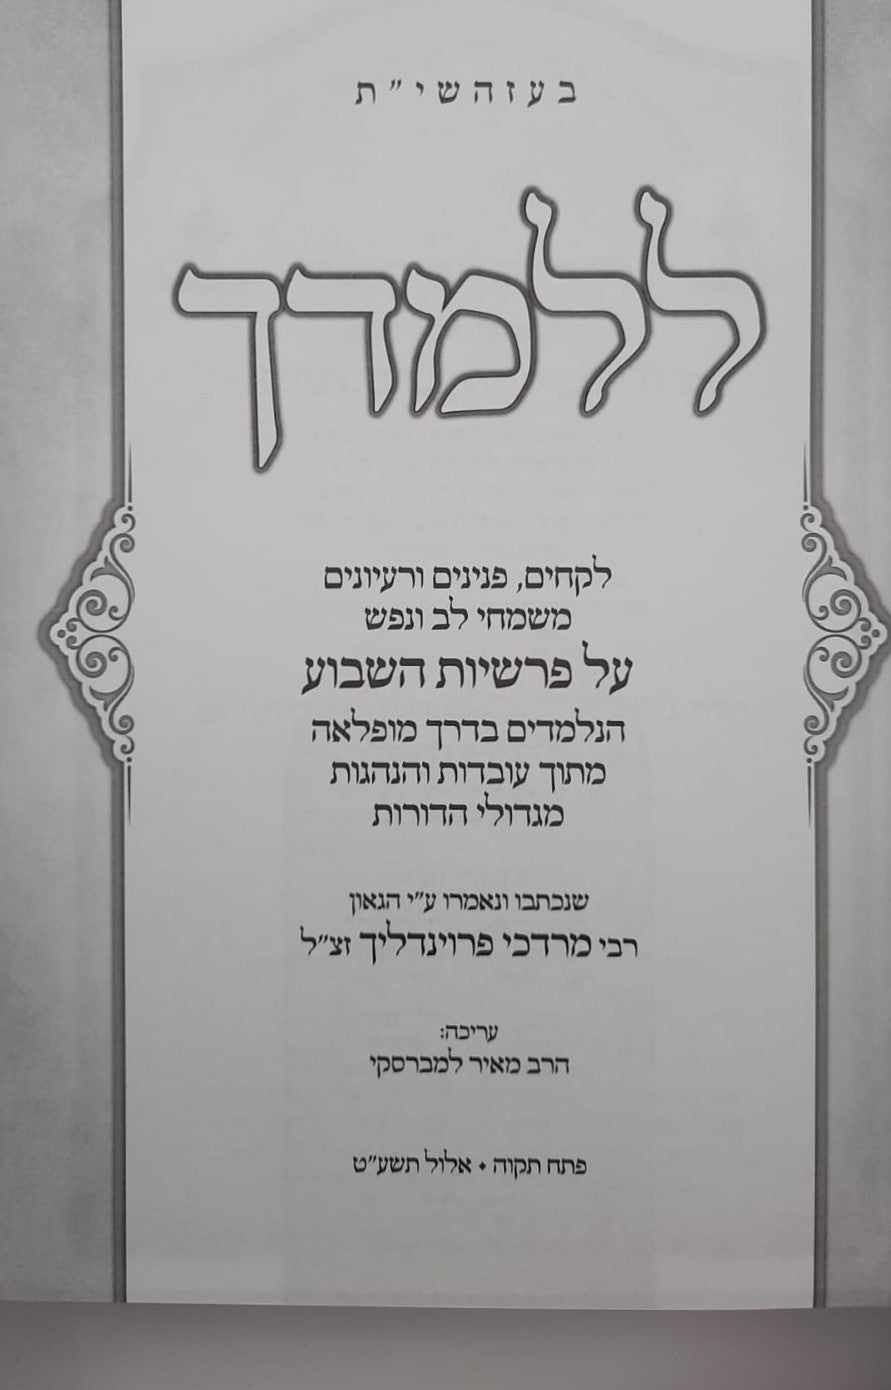 בעזהשי״ת
ללמדך
לקחים, פנינים ורעיונים
משמחי לב ונפש
על פרשיות השבוע
הנלמדים בדרך מופלאה
מתוך עובדות והנהגות
מגדולי הדורות
שנכתבו ונאמרו ע״י הגאון
רבי מרדכי פרוינדליך זצ״ל
עריכה:
הרב מאיר למברסקי
פתח תקוה • אלול תשע״ט